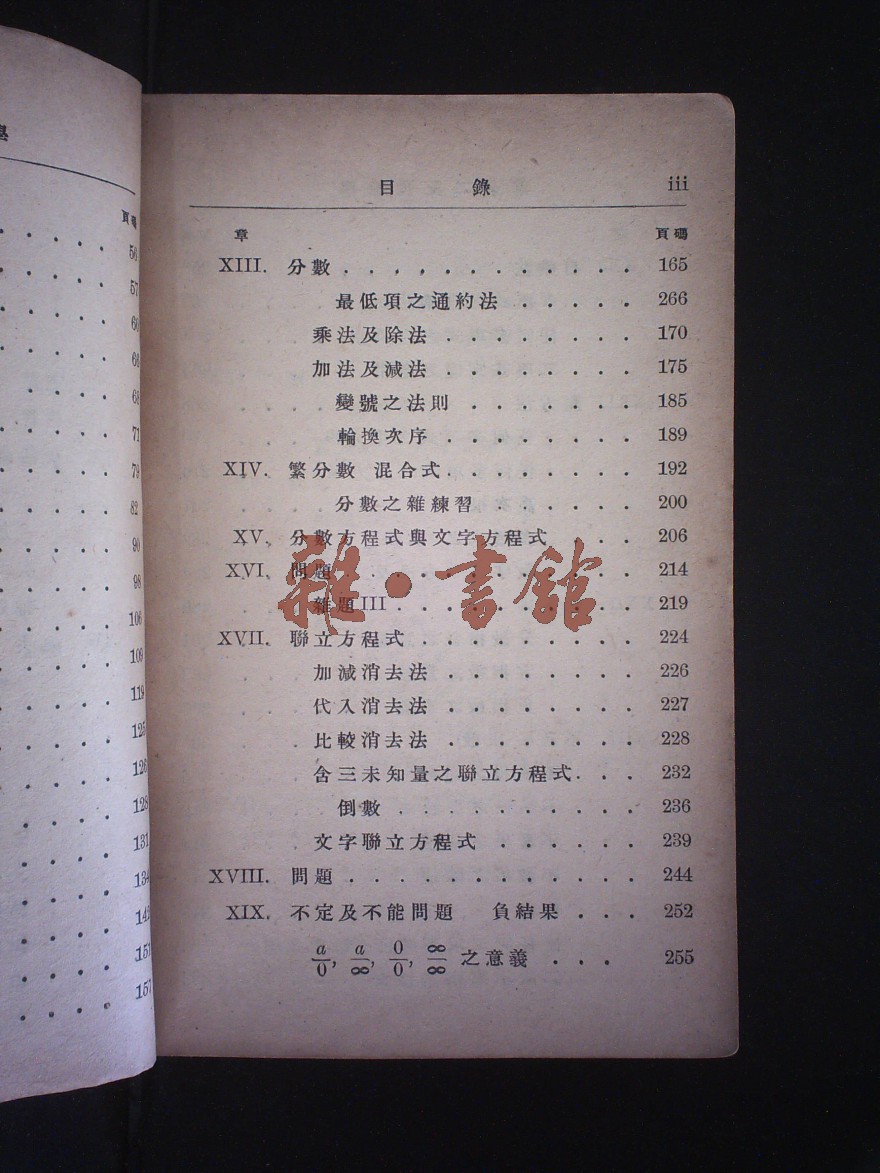 學
頁碼
56
57
60
66
68
71
79
82
90
98
106
109
119
125
126
128
131
134
142
151
157
目錄 iii
章 頁碼
XIII. 分數 . . . . . . . . . . . . . 165
最低項之通約法 . . . . . . 266
乘法及除法 . . . . . . . . 170
加法及減法 . . . . . . . . 175
變號之法則 . . . . . . . 185
輪換次序 . . . . . . . . 189
XIV. 繁分數 混合式 . . . . . . . . 192
分數之雜練習 . . . . . . 200
XV. 分數方程式與文字方程式 . . . 206
XVI. 問題 . . . . . . . . . . . . 214
雜題III . . . . . . . . . . 219
XVII. 聯立方程式 . . . . . . . . . 224
加減消去法 . . . . . . . . 226
代入消去法 . . . . . . . . 227
比較消去法 . . . . . . . . 228
含三未知量之聯立方程式 . . . 232
倒數 . . . . . . . . . . 236
文字聯立方程式 . . . . . . 239
XVIII. 問題 . . . . . . . . . . . . 244
XIX. 不定及不能問題 負結果 . . . 252
a/0, a/∞, 0/0, ∞/∞ 之意義 . . . 255
雜·書館